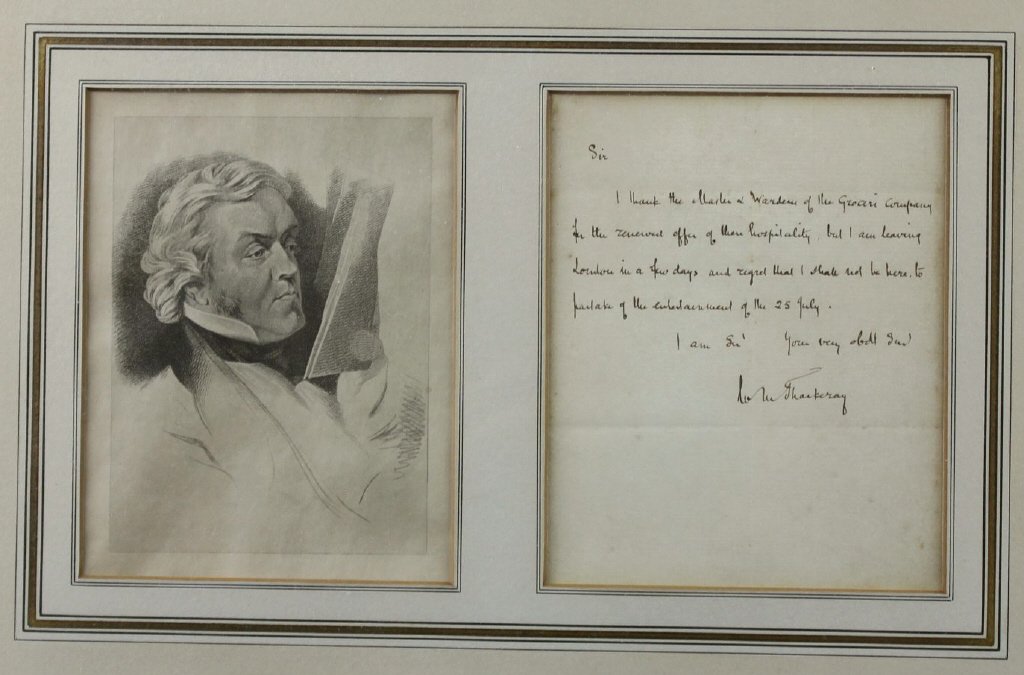 Sir
I thank the Master & Wardens of the Grocers Company
for the renewed offer of their hospitality, but I am leaving
London in a few days and regret that I shall not be here to
partake of the entertainment of the 25 July.
I am Sir Your very obdt Servt
W M Thackeray